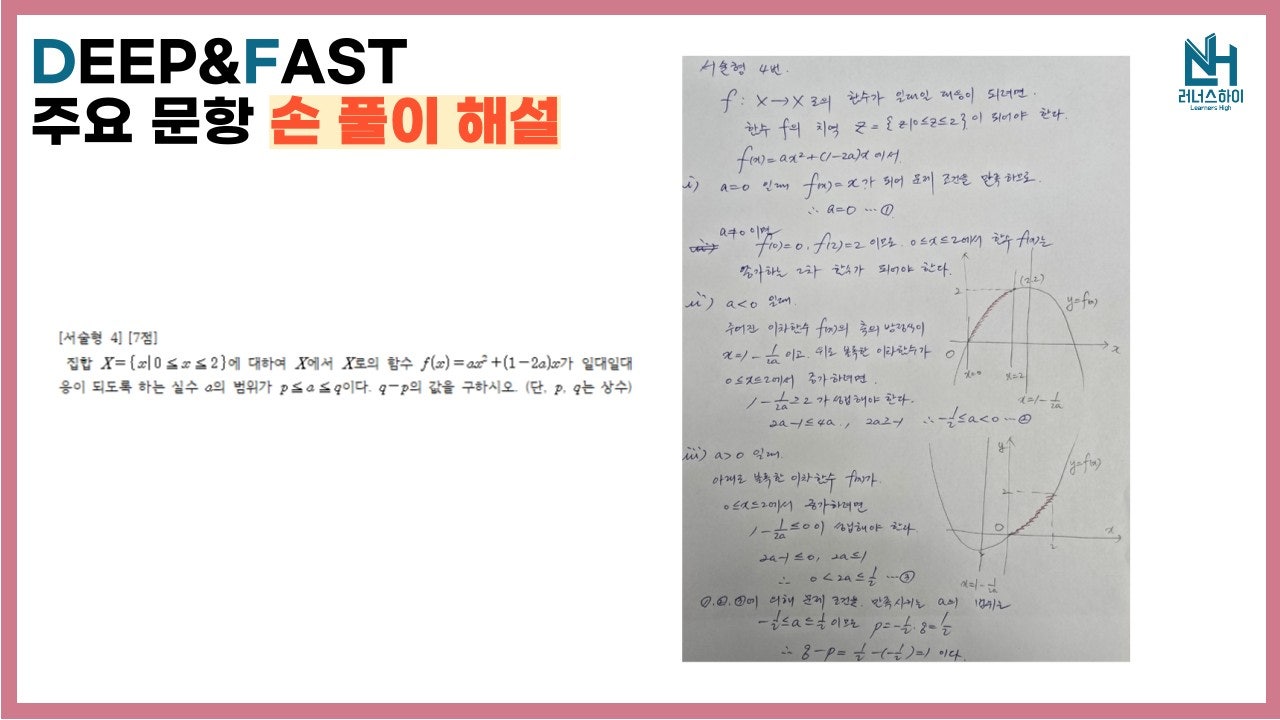 DEEP&FAST
주요 문항 손 풀이 해설
러너스하이
Learners High
[서술형 4] [7점]
집합 X={x|0≦x≦2}에 대하여 X에서 X로의 함수 f(x)=ax²+(1-2a)x가 일대일대
응이 되도록 하는 실수 a의 범위가 p≦a≦q이다. q-p의 값을 구하시오. (단, p, q는 상수)
서술형 4번.
f : X→X 로의 함수가 일대일 대응이 되려면.
함수 f의 치역 Z={z|0≤z≤2}이 되어야 한다.
f(x)=ax²+(1-2a)x 에서.
i) a=0 일때 f(x)=x가 되어 문제 조건을 만족하므로.
∴ a=0 ...①
a≠0 이면
f(0)=0, f(2)=2 이므로. 0≤x≤2에서 함수 f(x)는
증가하는 2차 함수가 되어야 한다.
ii) a<0 일때.
주어진 이차함수 f(x)의 축의 방정식이
x=1-1/2a 이고. 위로 볼록한 이차함수가
0≤x≤2에서 증가하려면.
1-1/2a≥2가 성립해야 한다.
2a-1≤4a, 2a≥-1 ∴ -1/2≤a<0 ...②
2
(2,2)
y=f(x)
O
x
x=0
x=2
x=1-1/2a
iii) a>0 일때.
아래로 볼록한 이차함수 f(x)가.
0≤x≤2에서 증가하려면
1-1/2a≤0이 성립해야 한다.
2a-1≤0, 2a≤1
∴ 0<2a≤1/2 ...③
y
y=f(x)
2
O
x
2
x=1-1/2a
①.②.③에 의해 문제 조건을 만족시키는 a의 범위는
-1/2≤a≤1/2 이므로 p=-1/2. q=1/2
∴ q-p=1/2-(-1/2)=1 이다.